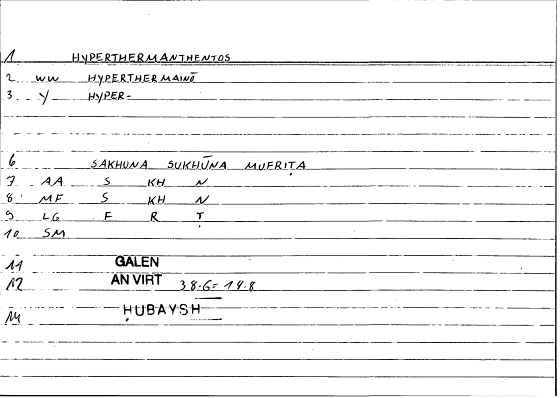 1 HYPERTHERMANTHENTOS
2 WW HYPERTHERMAINŌ
3 Y HYPER-
6 SAKHUNA SUKHŪNA MUFRIṬA
7 AA S KH N
8 MF S KH N
9 LG F R Ṭ
10 SM
11 GALEN
12 AN VIRT 38.6= 14.8
14 ḤUBAYSH